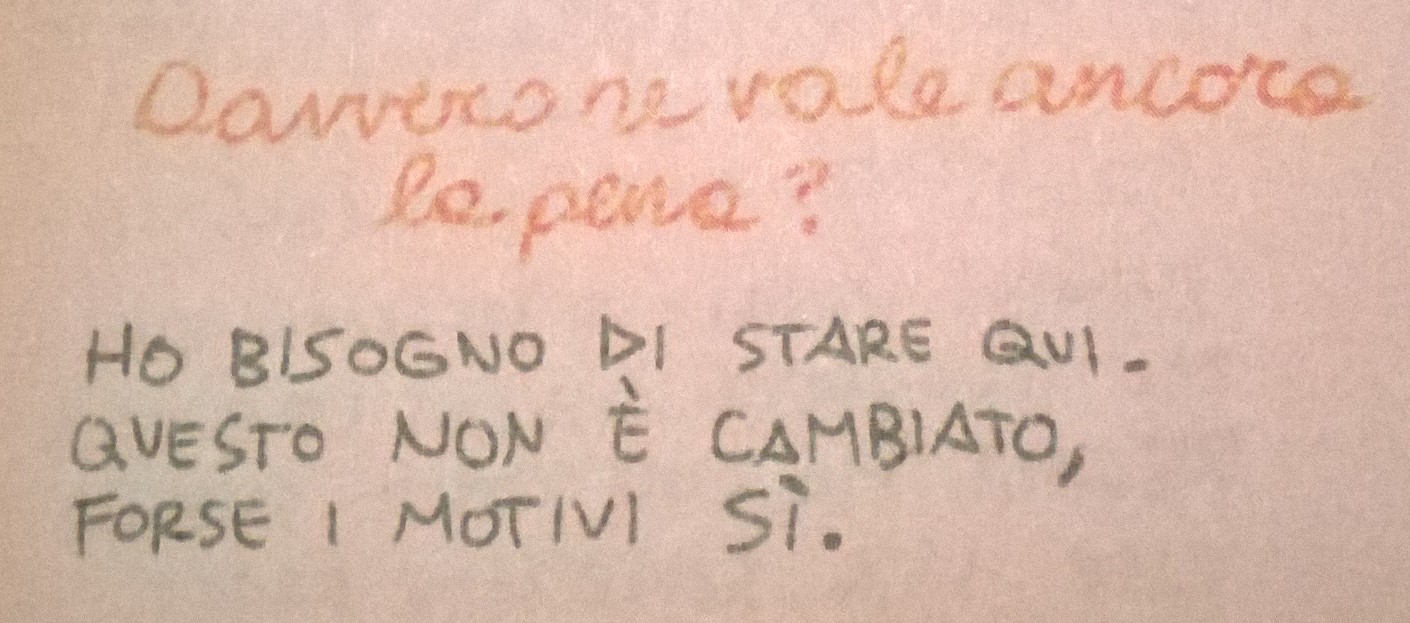 Davvero ne vale ancora
la pena?
HO BISOGNO DI STARE QUI.
QUESTO NON È CAMBIATO,
FORSE I MOTIVI SÌ.